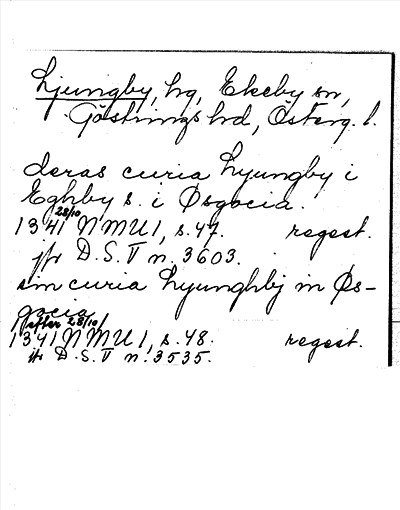 Ljungby, hg, Ekeby sn,
Göstrings hd, Österg. l.
deras curia Lyungby i
Eghby s. i Øsgocia.
28/10
1341 NMU 1, s. 47. regest.
jfr D.S. V n. 3603.
sin curia Lyunghbj in Øs-
gocia
/efter 28/10/
1341 NMU 1, s. 48. regest.
jfr D.S. V n. 3535.